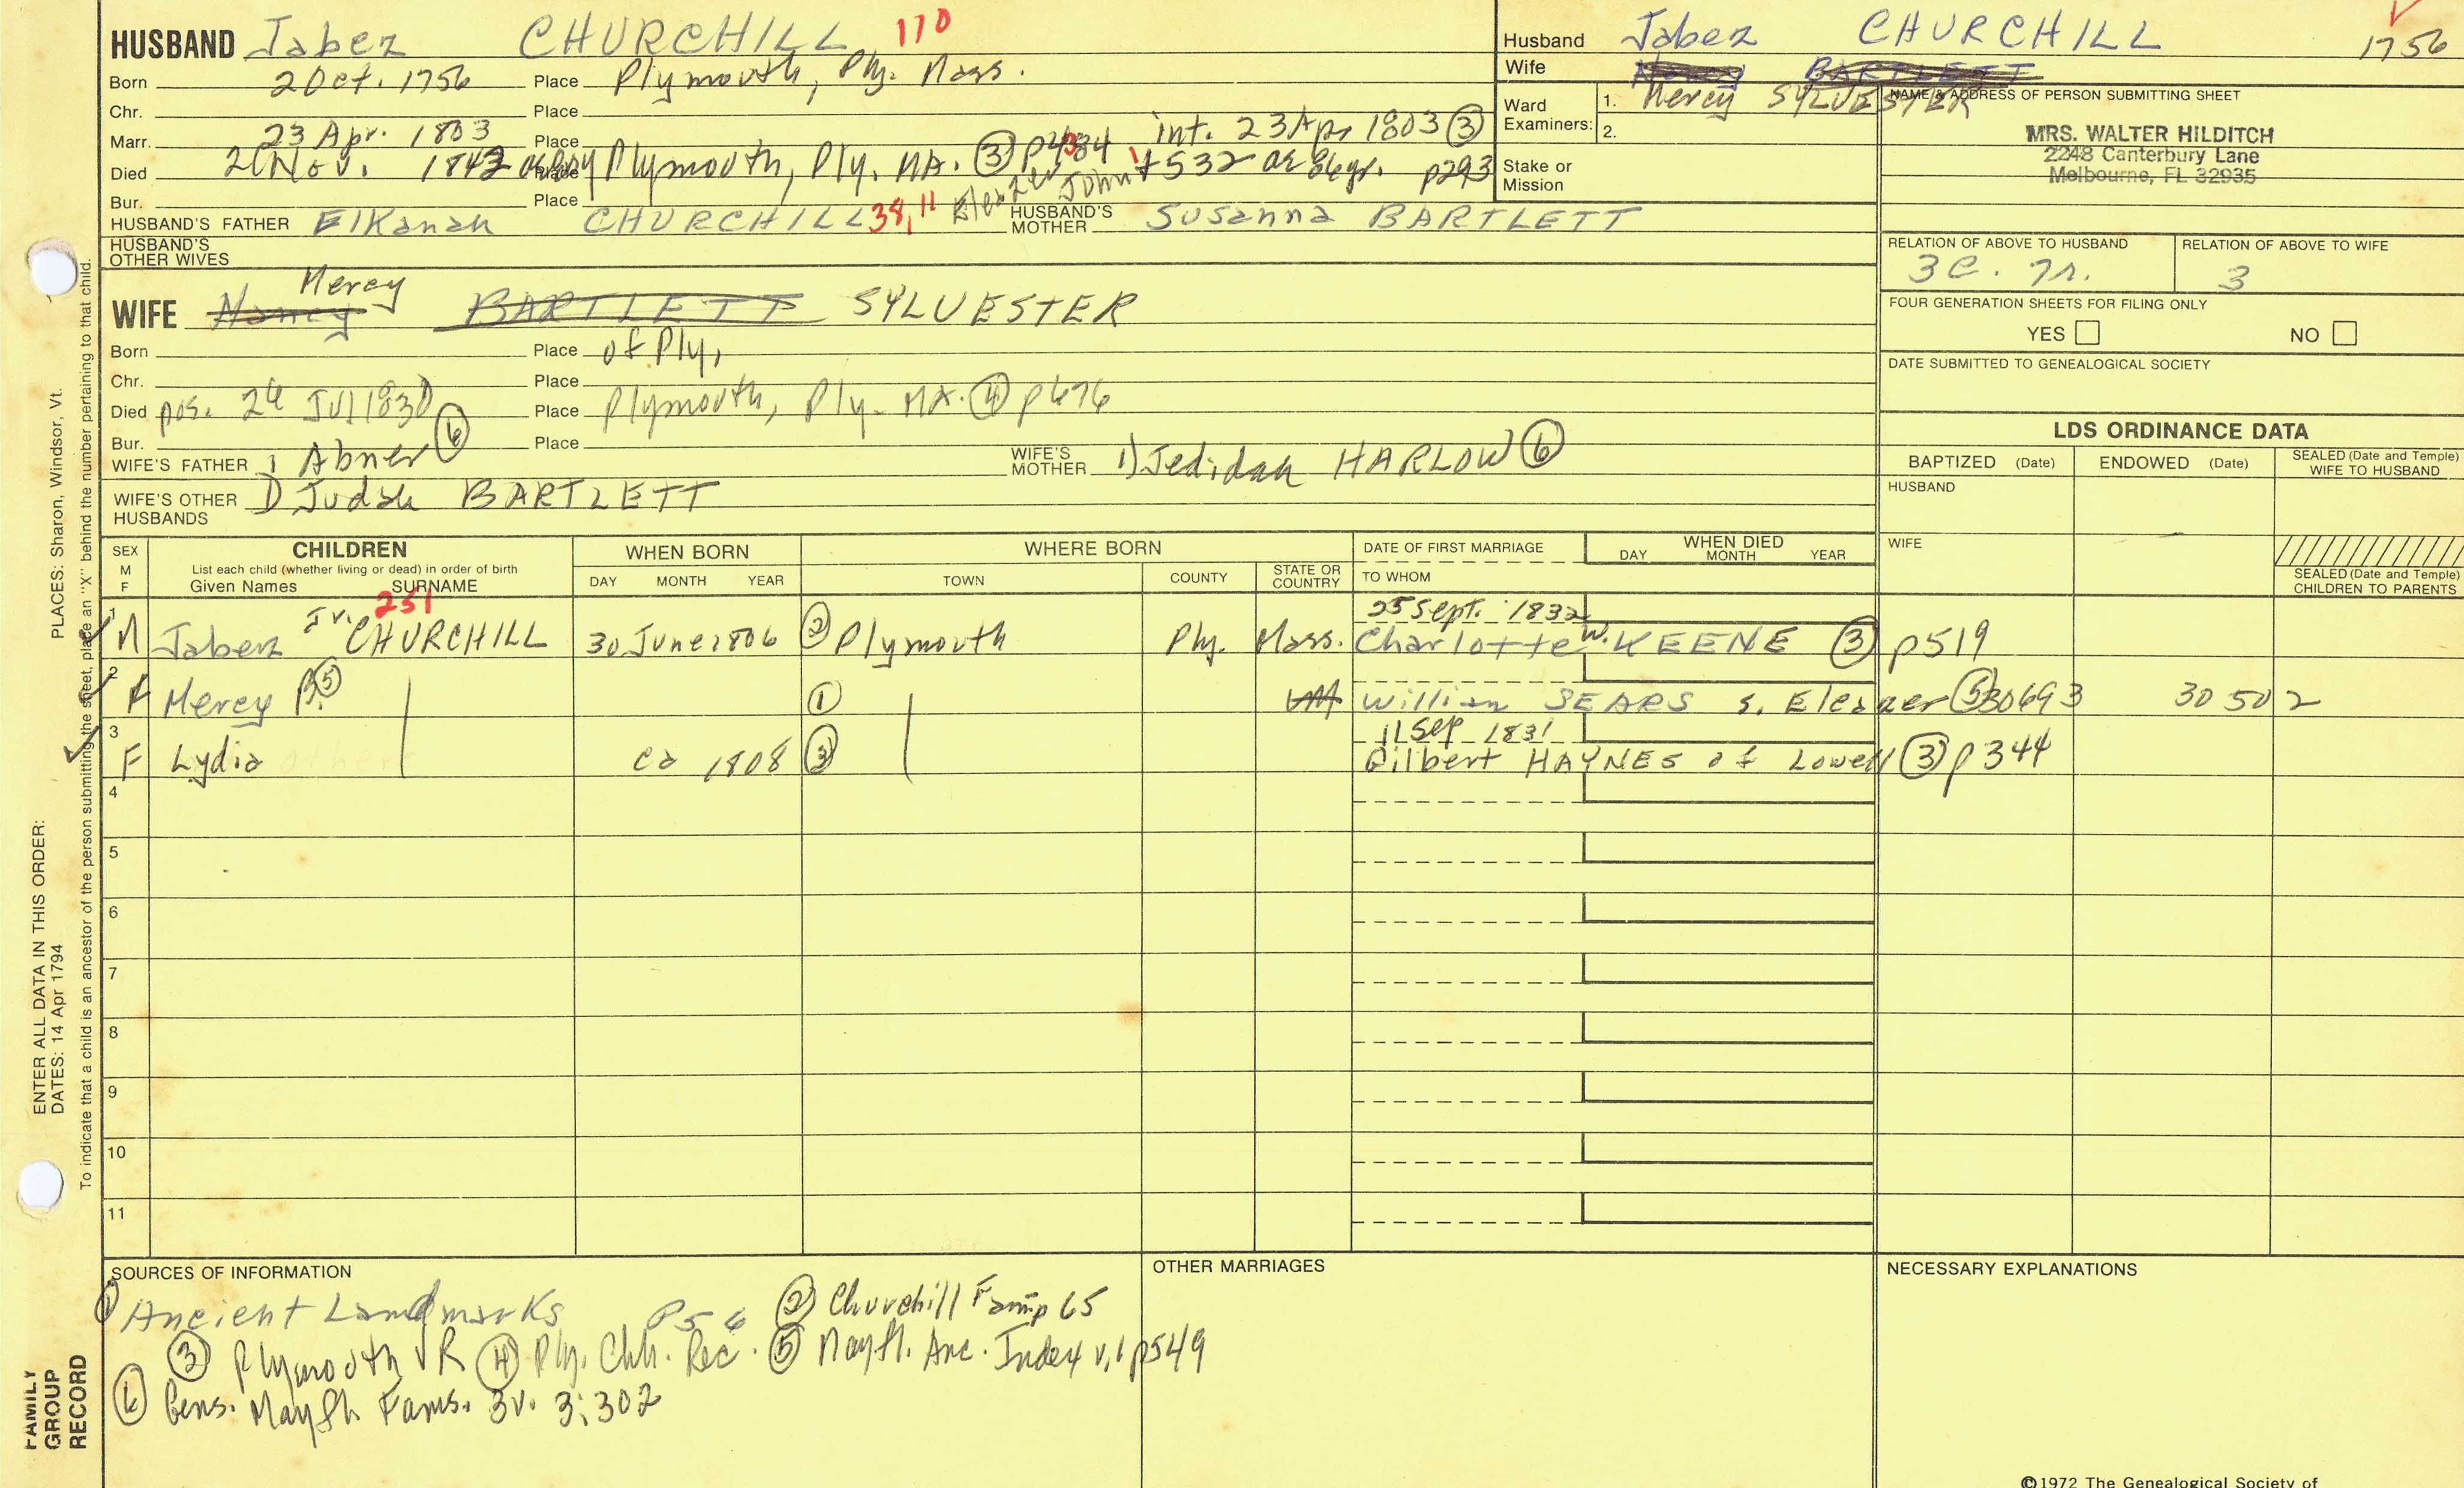 HUSBAND Jabez CHURCHILL 110
Born 2 Oct. 1756 Place Plymouth, Ply. Mass.
Chr. Place
Marr. 23 Apr. 1803 Place int. 23 Apr 1803 ③
Died 2 Nov. 1842 Place Plymouth, Ply. MA. ③ + 532 ae 86yr. p293
Bur. Place Eleazer John
HUSBAND'S FATHER Elkanah CHURCHILL 38, 11 HUSBAND'S MOTHER Susanna BARTLETT
HUSBAND'S OTHER WIVES
Mercy
WIFE Nancy BARTLETT SYLVESTER
Born Place of Ply,
Chr. Place
Died pos. 24 Jul 1830 Place Plymouth, Ply. MA. ④ p676
Bur. Place
WIFE'S FATHER 1 Abner ⑥ WIFE'S MOTHER 1) Jedidah HARLOW ⑥
WIFE'S OTHER HUSBANDS 1) Judah BARTLETT
Husband Jabez CHURCHILL 1756
Wife Nancy BARTLETT
Mercy SYLVESTER
Ward Examiners: 1.
2.
Stake or Mission
NAME & ADDRESS OF PERSON SUBMITTING SHEET
MRS. WALTER HILDITCH
2248 Canterbury Lane
Melbourne, FL 32935
RELATION OF ABOVE TO HUSBAND RELATION OF ABOVE TO WIFE
3C. 7r. 3
FOUR GENERATION SHEETS FOR FILING ONLY
YES NO
DATE SUBMITTED TO GENEALOGICAL SOCIETY
LDS ORDINANCE DATA
BAPTIZED (Date) ENDOWED (Date) SEALED (Date and Temple) WIFE TO HUSBAND
HUSBAND
WIFE
SEALED (Date and Temple) CHILDREN TO PARENTS
SEX M F
CHILDREN
List each child (whether living or dead) in order of birth
Given Names SURNAME
WHEN BORN
DAY MONTH YEAR
WHERE BORN
TOWN COUNTY STATE OR COUNTRY
DATE OF FIRST MARRIAGE
TO WHOM
WHEN DIED
DAY MONTH YEAR
251
25 Sept. 1832
1 M Jabez Jr. CHURCHILL 30 June 1806 ② Plymouth Ply. Mass. Charlotte W. KEENE ③ p519
2 F Mercy B. ⑤ ① William SEARS s. Eleazer ⑤ 30693 30502
11 Sep 1831
3 F Lydia ca 1808 ③ Gilbert HAYNES of Lowell ③ p344
4
5
6
7
8
9
10
11
SOURCES OF INFORMATION
① Ancient Landmarks P56 ② Churchill Fam p 65
③ Plymouth VR ④ Ply. Chh. Rec. ⑤ Mayfl. Anc. Index v.1 p549
⑥ Gens. Mayfl. Fams. 3v. 3:302
OTHER MARRIAGES
NECESSARY EXPLANATIONS
©1972 The Genealogical Society of
ENTER ALL DATA IN THIS ORDER:
DATES: 14 Apr 1794 PLACES: Sharon, Windsor, Vt.
To indicate that a child is an ancestor of the person submitting the sheet, place an "X" behind the number pertaining to that child.
FAMILY GROUP RECORD